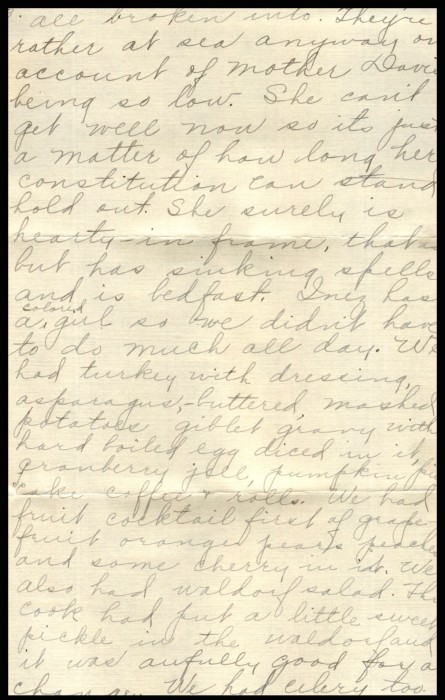 all broken into. They're
rather at sea anyway on
account of Mother Davis
being so low. She can't
get well now so its just
a matter of how long her
constitution can stand
hold out. She surely is
hearty in frame, that is
but has sinking spells
and is bedfast. Inez has
colored
a girl so we didn't have
to do much all day. We
had turkey with dressing,
asparagus, buttered, mashed
potatoes giblet gravy with
hard boiled egg diced in it,
cranberry jell, pumpkin pie
cake coffee & rolls. We had
fruit cocktail first of grape
fruit oranges pears peaches
and some cherry in it. We
also had waldorf salad. The
cook had put a little sweet
pickle in the waldorf and
it was awfully good for a
change. We had celery too